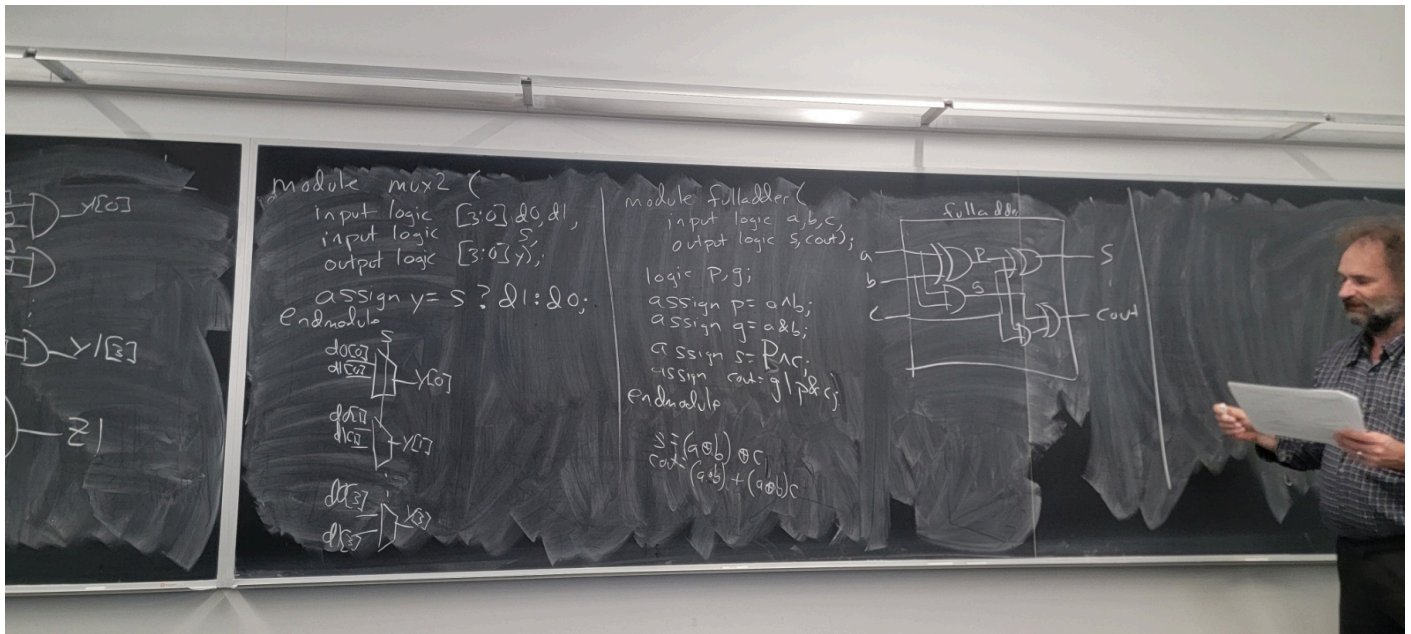 Y[0]
Y1[3]
Z1
module mux2 (
input logic [3:0] d0, d1,
input logic s,
output logic [3:0] y);
assign y = s ? d1 : d0;
endmodule
S
d0[0]
d1[0]
Y[0]
d0[1]
d1[1]
Y[1]
d0[3]
d1[3]
Y[3]
module fulladder (
input logic a, b, c,
output logic s, cout);
logic p, g;
assign p = a ^ b;
assign g = a & b;
assign s = p ^ c;
assign cout = g | p & c;
endmodule
s = (a ⊕ b) ⊕ c
cout = (a·b) + (a⊕b)c
fulladder
a
b
c
P
S
cout